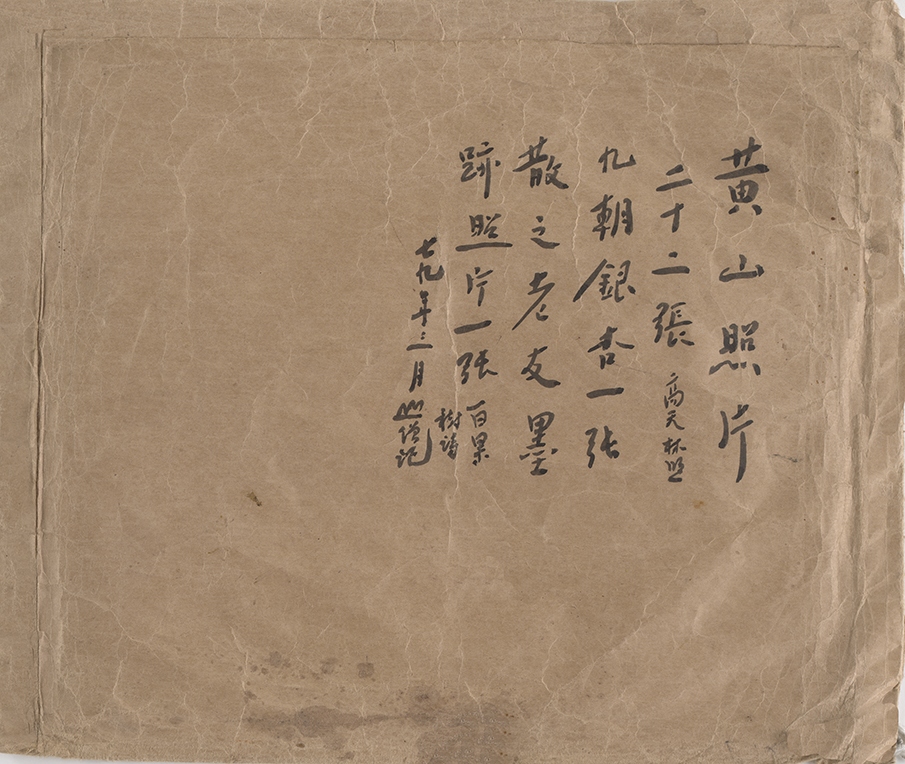 黄山照片
二十二張 高天 攝
九朝銀杏一张
散之老友墨
跡照片一张 百㬎
樹詩
七九年三月 僧记